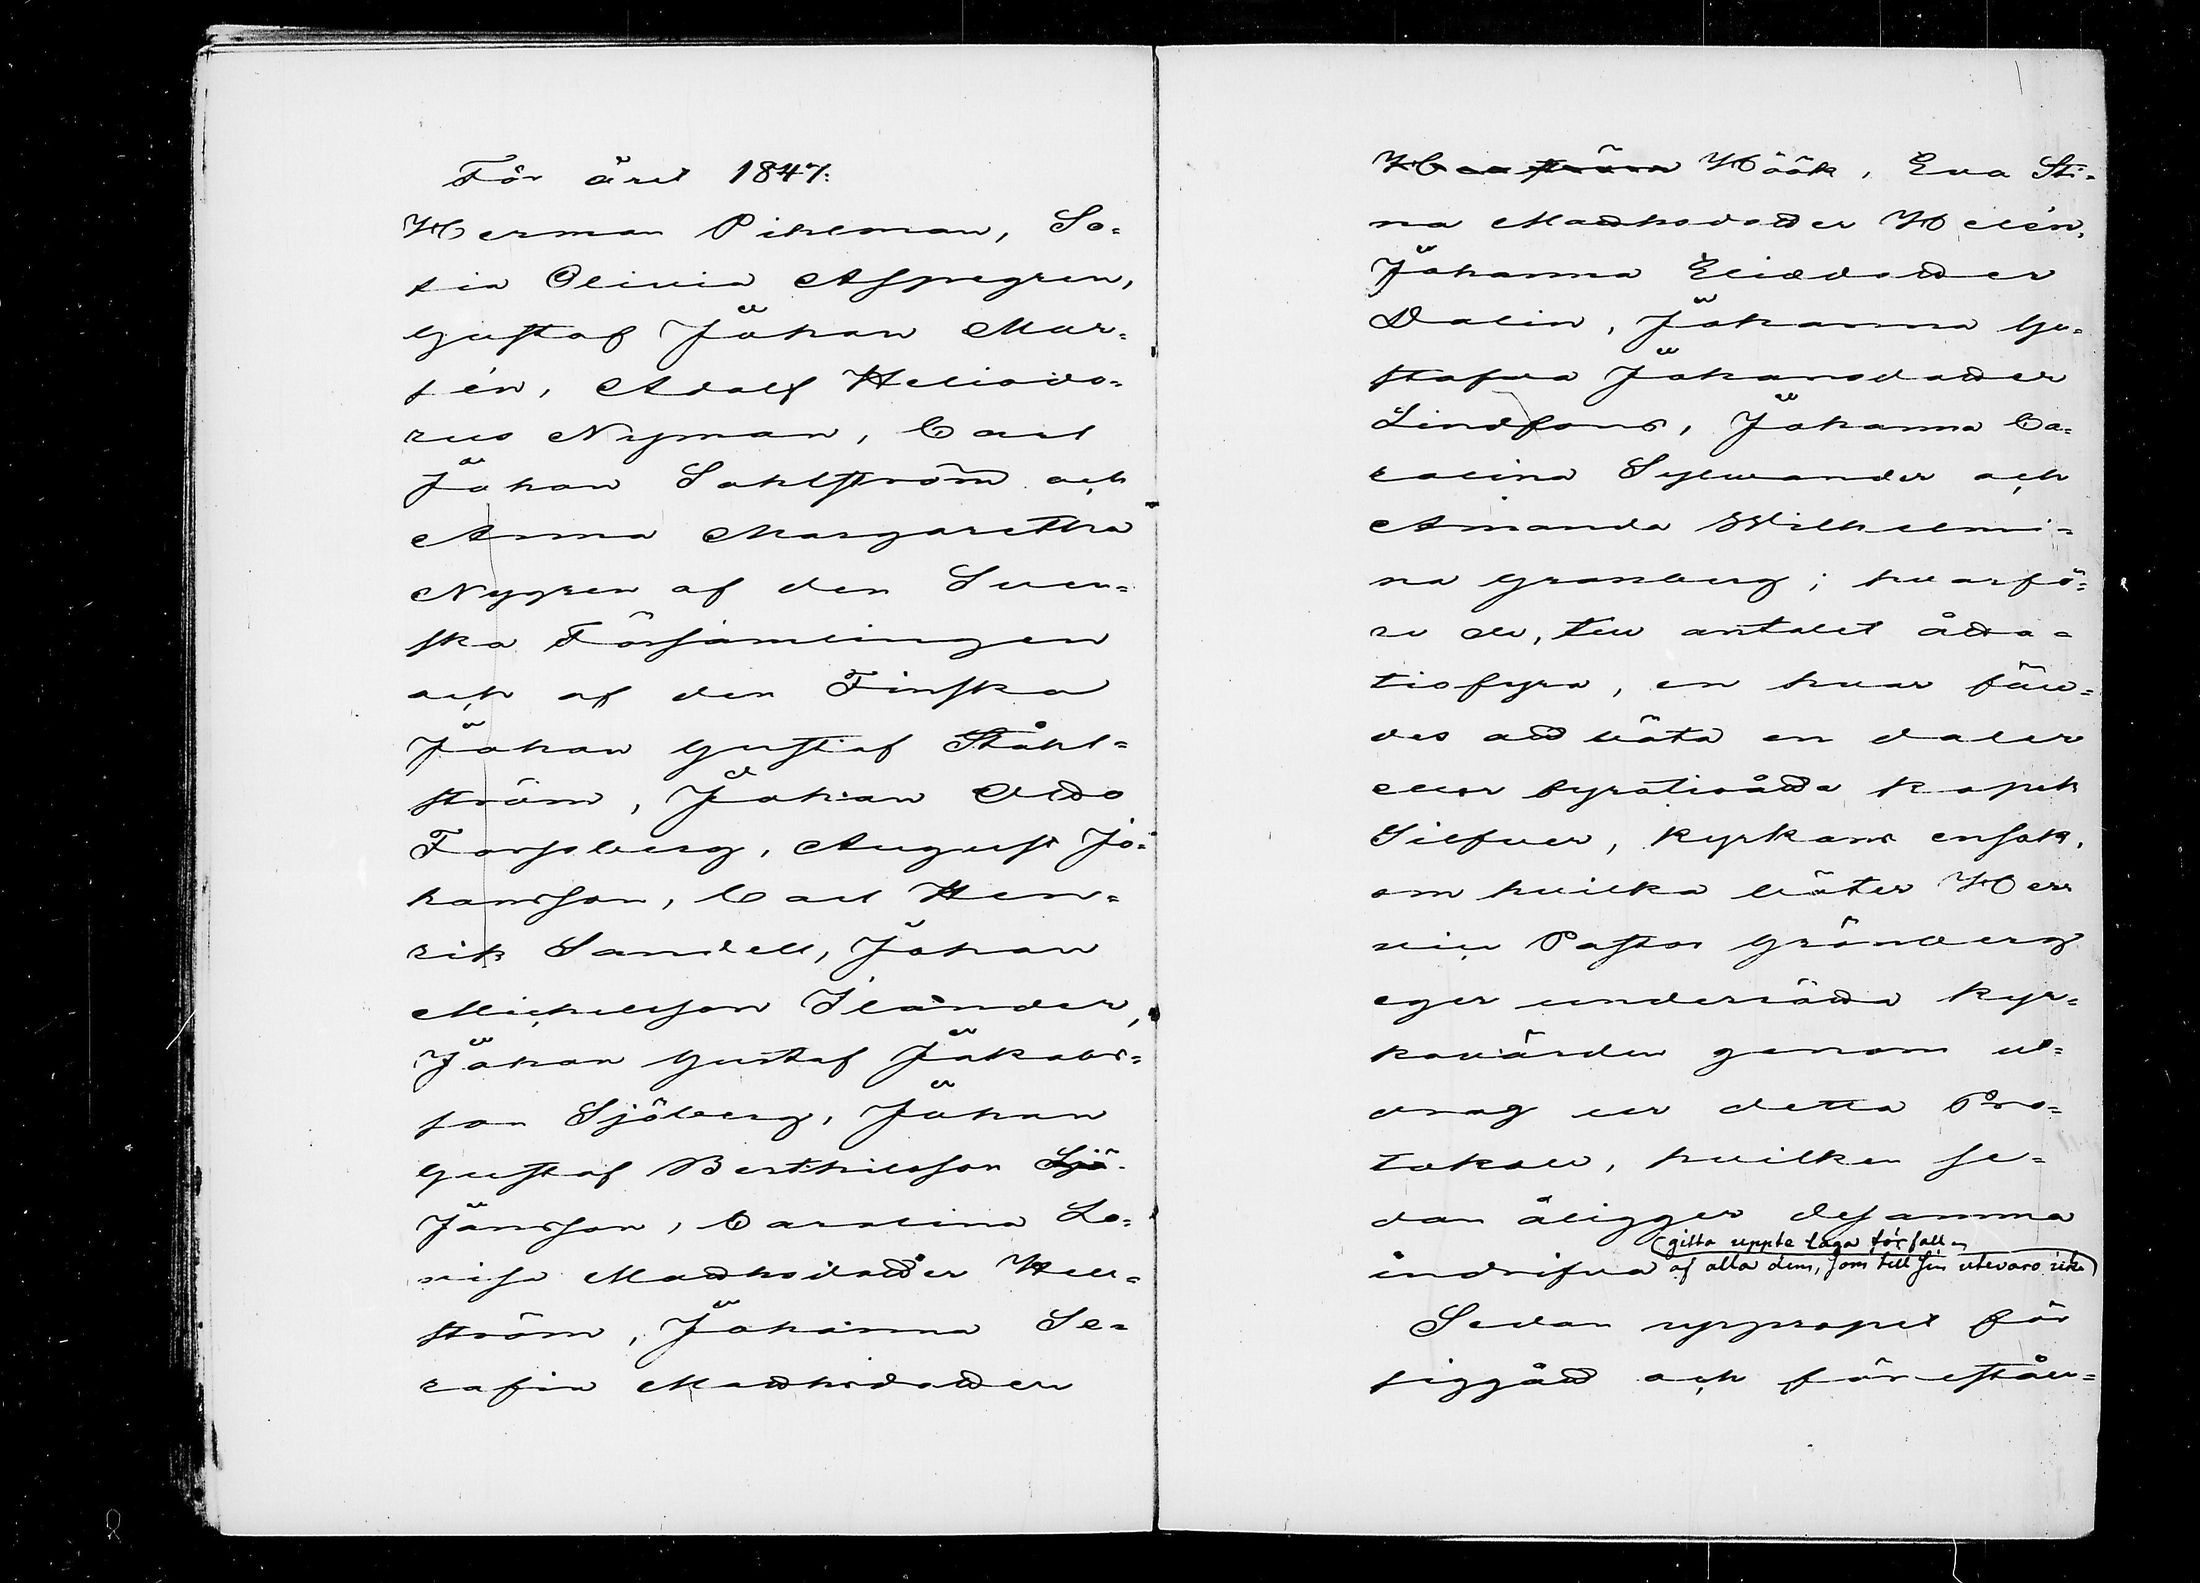 För året 1847:
Herman Pihlman, So-
fia Olivia Aspegren,
Gustaf Johan Mor-
sén, Adolf Heliodo-
rus Nyman, Carl
Johan Sahlström och
Anna Margaretha
Nygren af den Sven-
ska Församlingen
och af den Finska
Johan Gustaf Ståhl-
ström, Johan Otto
Forssberg, August Jo-
hansson, Carl Hen-
rik Sandell, Johan
Michelsson Ilander,
Johan Gustaf Jakobs-
son Sjöberg, Johan
Gustaf Berthilsson Sjö-
Jansson, Carolina Lo-
visa Mattsdotter Hell-
ström, Johanna Se-
rafia Mattsdotter
Hellström Höök, Eva Sti-
na Mattsdotter Helén,
Johanna Elisdotter
Dalin, Johanna Gu-
stafva Johansdotter
Lindfors, Johanna Ca-
rolina Sylvander och
Amanda Wilhelmi-
na Granberg; hvarfö-
re de, till antalet åtta-
tiofyra, en hvar fäll-
des att böta en daler
eller fyratioåtta kopek
Silfver, kyrkans ensak,
om hvilka böter Herr
Vice Pastor Grönberg
eger underrätta kyr-
kovärden genom ut-
drag ur detta Pro-
tokoll, hvilken se-
dan åligger desamma
gitta uppte laga förfall
indrifva af alla dem, som till sin utevaro icke
Sedan uppropet för
siggått och förestäl-